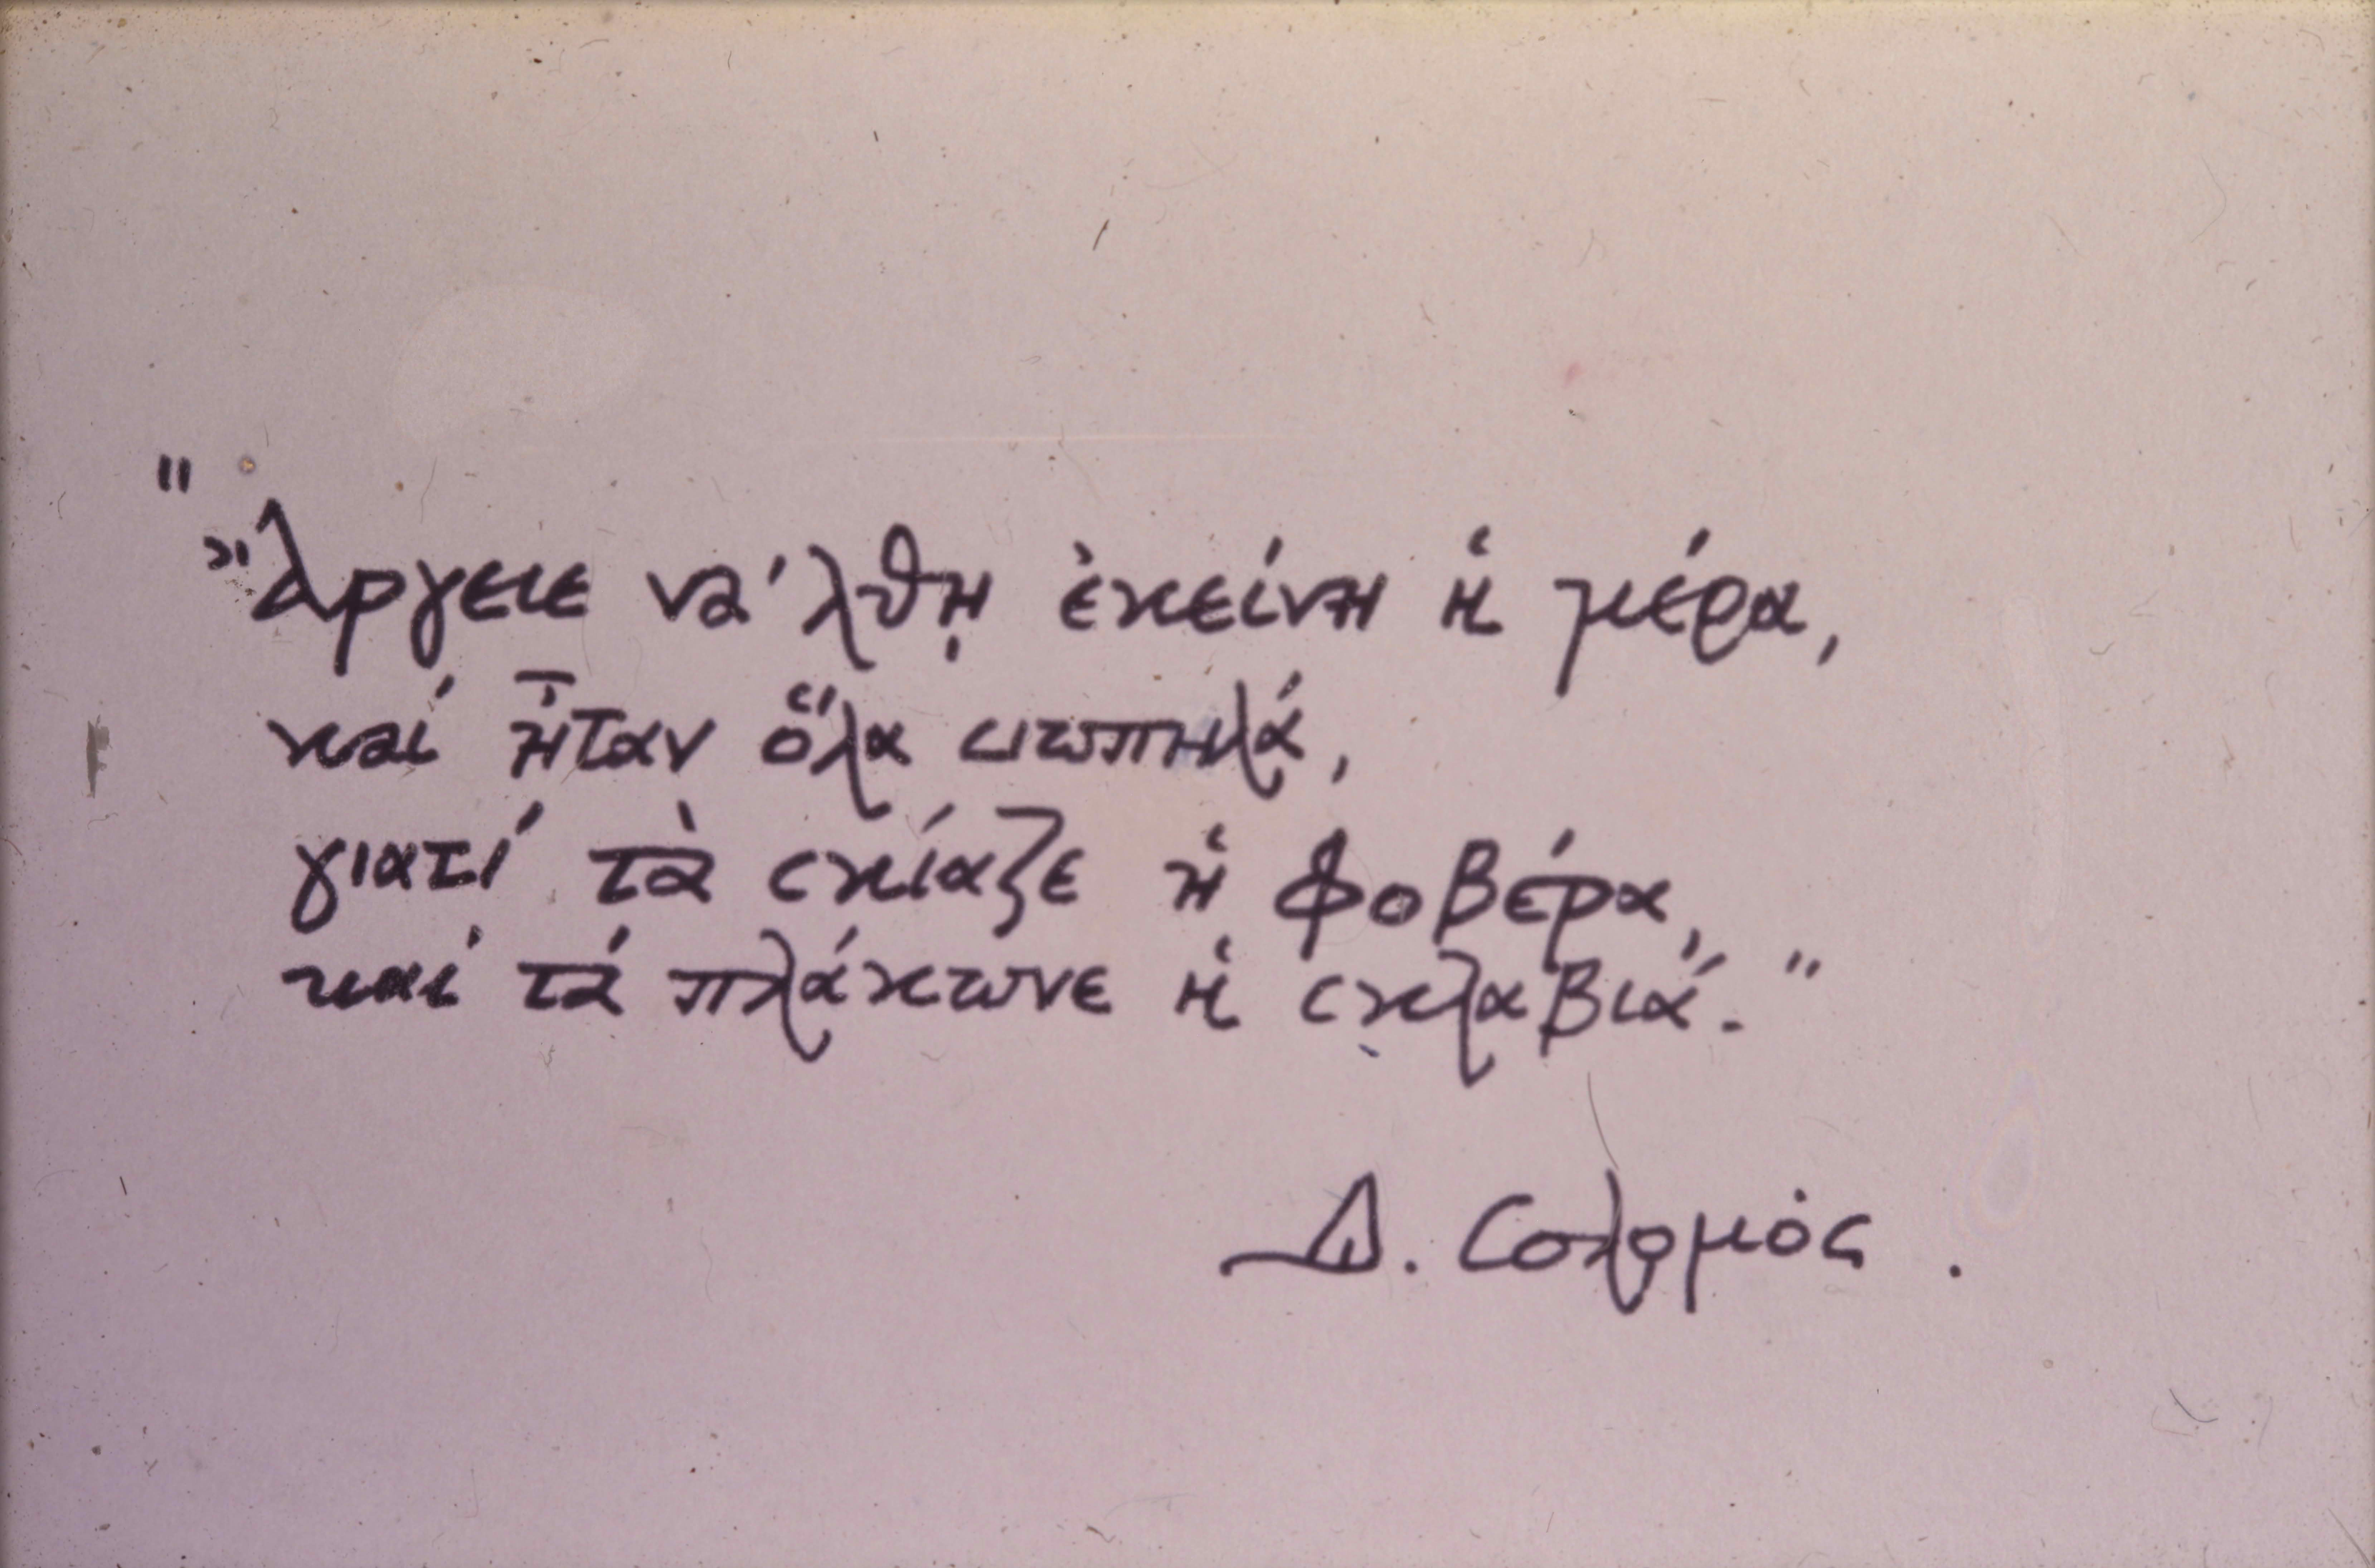 "
Ἄργειε νά 'λθῃ ἐκείνη ἡ μέρα,
καί ἦταν ὅλα σιωπηλά,
γιατί τὰ σκίαζε ἡ φοβέρα,
καί τά πλάκωνε ἡ σκλαβιά."
Δ. Σολομός.